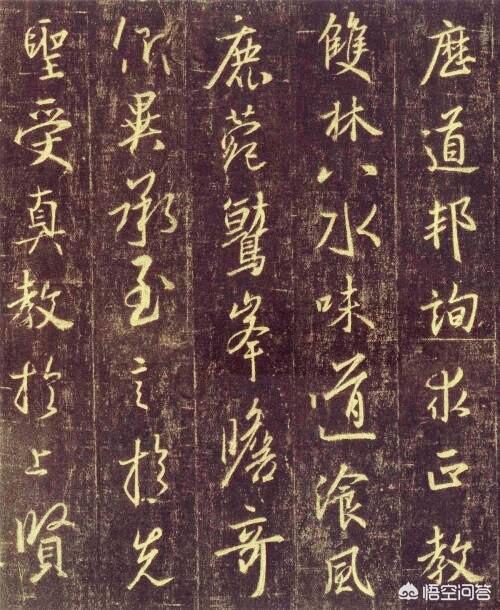 歷道邦詢求正教
雙林八水味道飡風
鹿菀鷲峯瞻奇
仰異承至言於先
聖受真教於上賢
悟空问答